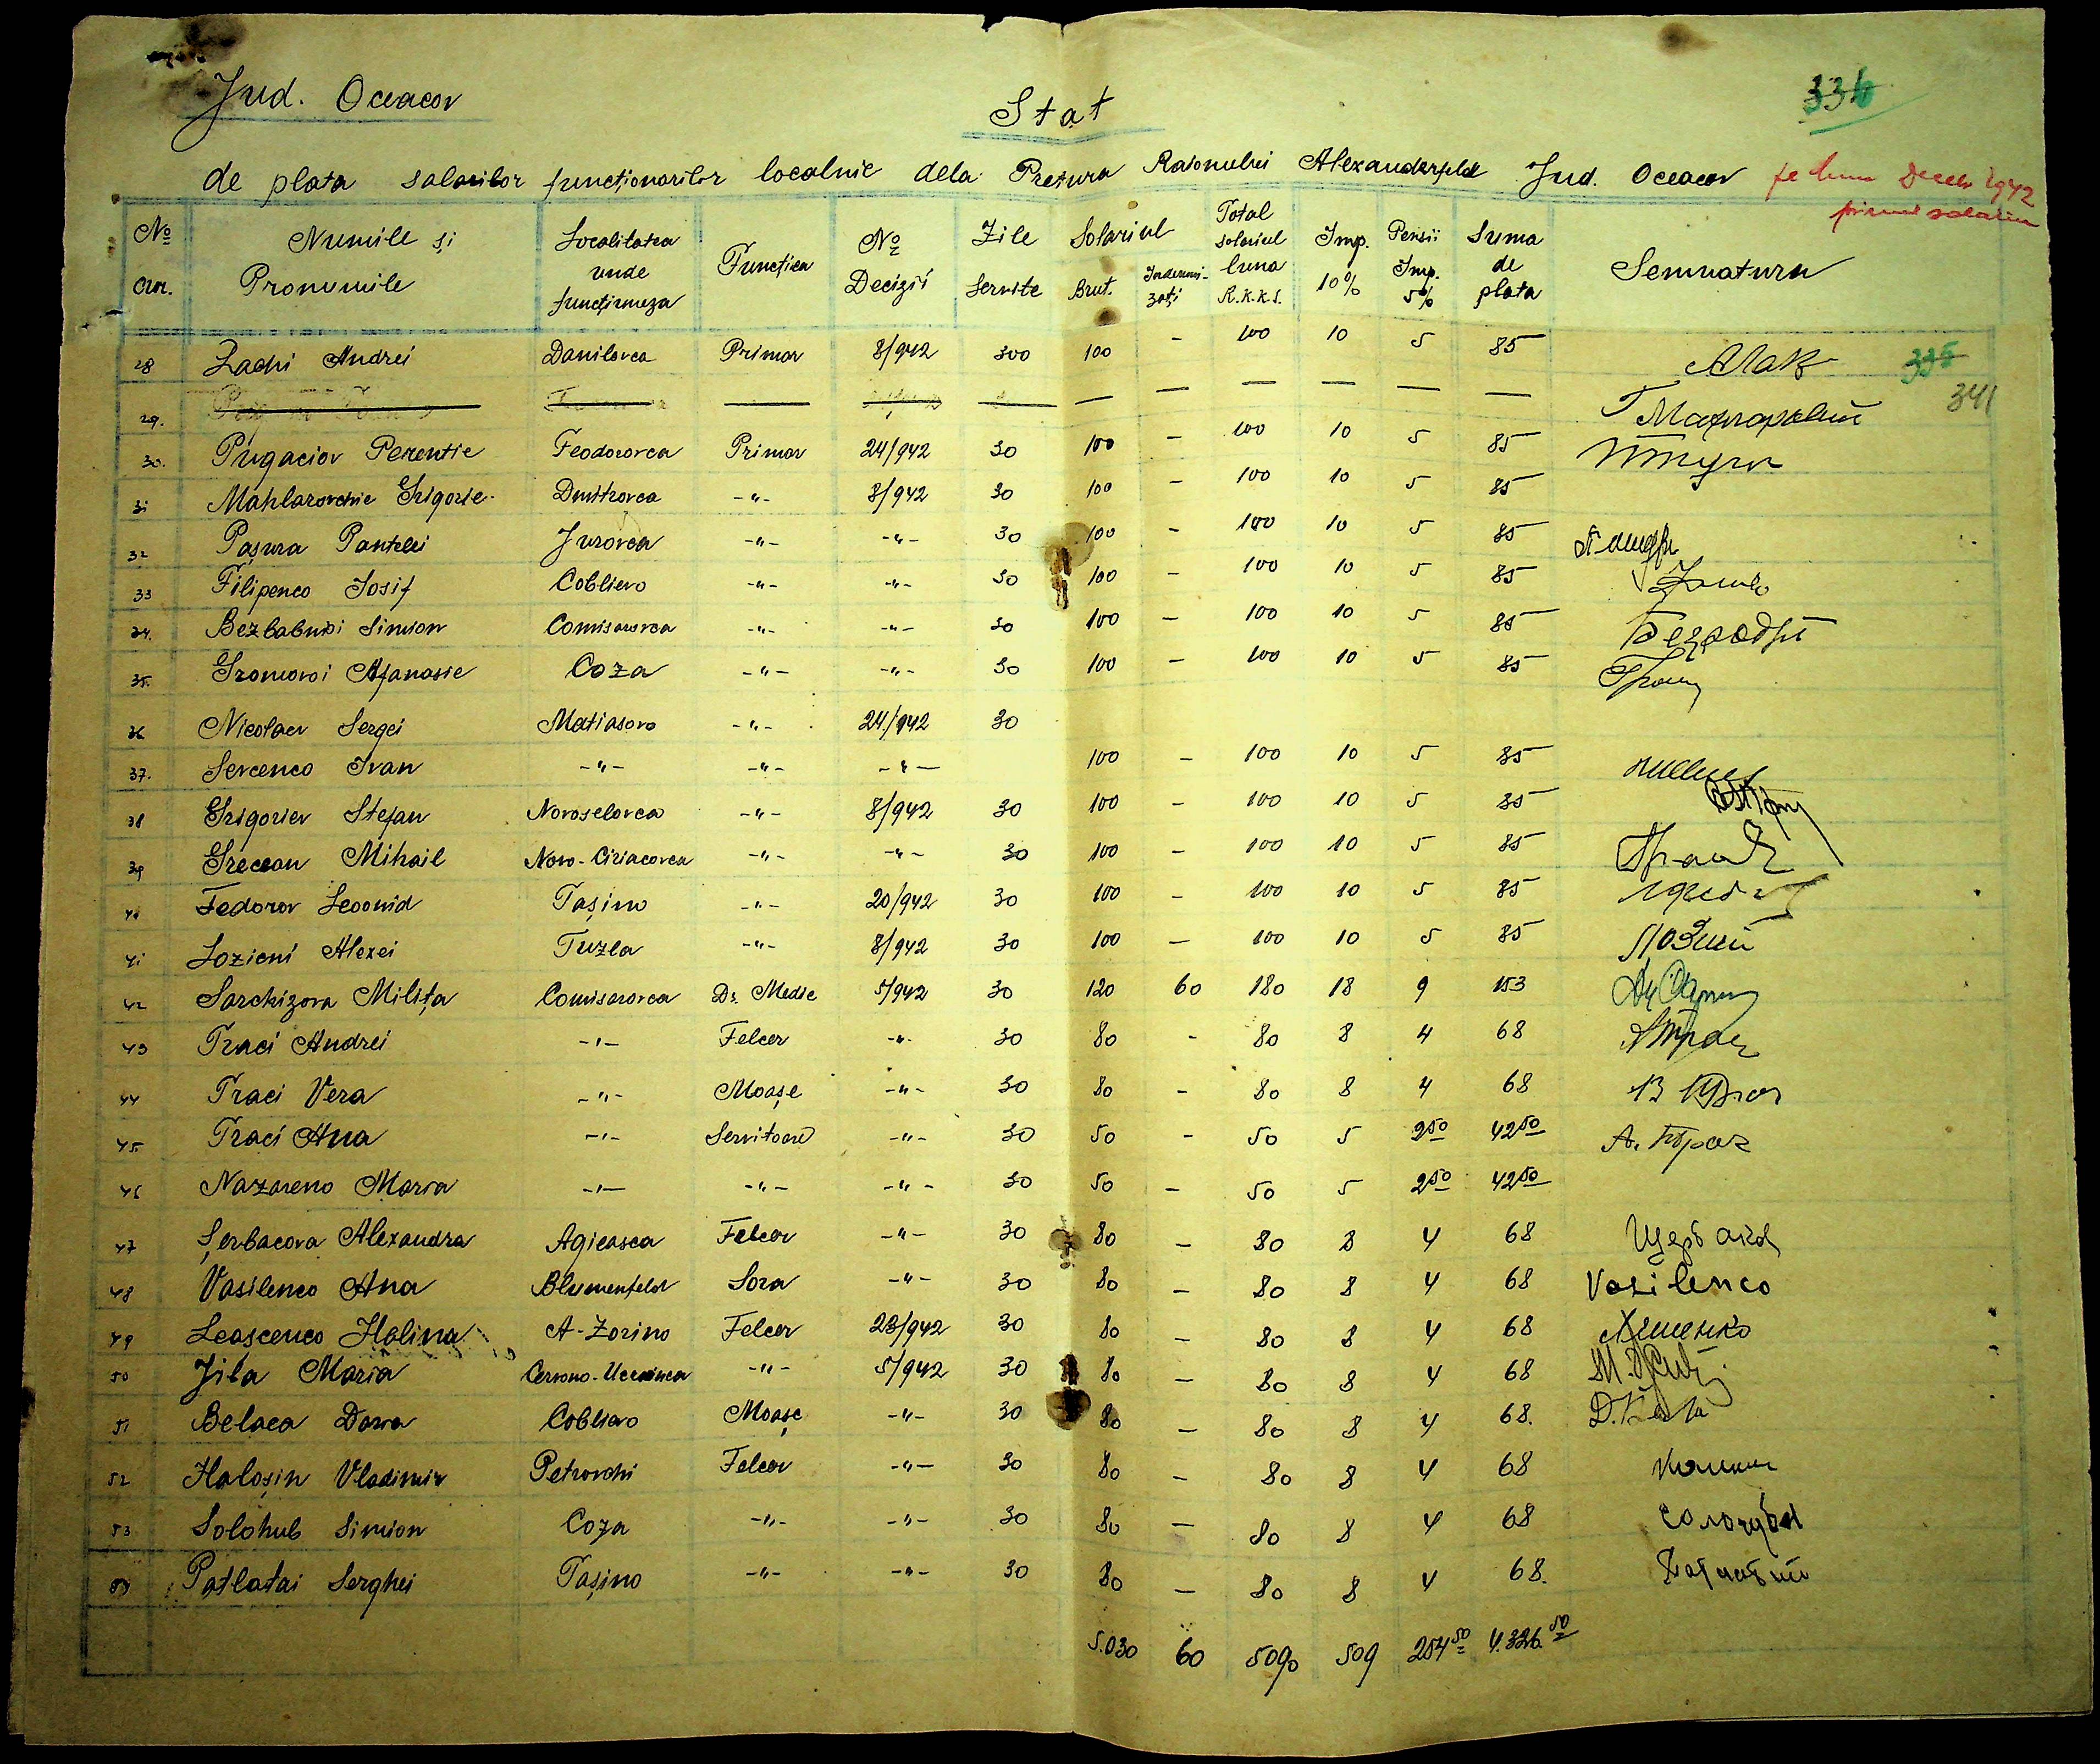 Jud. Oceacov
Stat
336
de plata salarilor funcționarilor localnic dela Pretura Raionului Alexanderfeld Jud. Oceacov pe luna Decebr 1942
primul salariu
No cur. Numile și Pronumile Localitatea unde funcționeza Funcția No Decizii Zile Servite Solariul Brut. Indemnizați Total solariul luna R.k.k.S. Imp. 10% Pensii Imp. 5% Suma de plata Semnatura
28 Zachi Andrei Danilovca Primar 8/942 300 100 - 100 10 5 85
335
29. — — — — — —
341
30. Pugaciov Perentie Feodorovca Primar 24/942 30 100 - 100 10 5 85
31 Mahlarovchie Grigorie Dmitrovca -"- 8/942 30 100 - 100 10 5 85
32 Pașura Pantelei Jurovca -"- -"- 30 100 - 100 10 5 85
33 Filipenco Iosif Coblievo -"- -"- 30 100 - 100 10 5 85
34. Bezbabnîi Simion Comisarovca -"- -"- 30 100 - 100 10 5 85
35. Gromovoi Afanasie Coza -"- -"- 30 100 - 100 10 5 85
36 Nicolaev Sergei Matiasovo -"- 24/942 30
37. Sevcenco Ivan -"- -"- -"- 100 - 100 10 5 85
38 Grigoriev Stefan Novoselovca -"- 8/942 30 100 - 100 10 5 85
39 Grecean Mihail Novo-Ciriacovca -"- -"- 30 100 - 100 10 5 85
40 Fedorov Leoonid Tașino -"- 20/942 30 100 - 100 10 5 85
41 Lozieni Alexei Tuzla -"- 8/942 30 100 - 100 10 5 85
42 Sarchizova Milița Comisarovca Dr. Medic 5/942 30 120 60 180 18 9 153
43 Traci Andrei -"- Felcer -"- 30 80 - 80 8 4 68
44 Traci Vera -"- Moașe -"- 30 80 - 80 8 4 68
45. Traci Ana -"- Servitoare -"- 30 50 - 50 5 2 50 42 50
46 Nazareno Maria -"- -"- -"- 30 50 - 50 5 2 50 42 50
47 Șerbacova Alexandra Agieasca Felcer -"- 30 80 - 80 8 4 68
48 Vasilenco Ana Blumenfeld Sora -"- 30 80 - 80 8 4 68 Vasilenco
49 Leascenco Halina A-Zorino Felcer 23/942 30 80 - 80 8 4 68
50 Jila Maria Cervono-Ucrainca -"- 5/942 30 80 - 80 8 4 68
51 Belaea Daria Cobliavo Moașe -"- 30 80 - 80 8 4 68.
52 Haloșin Vladimir Petrovchi Felcer -"- 30 80 - 80 8 4 68
53 Solohub Simion Coza -"- -"- 30 80 - 80 8 4 68
54 Patlatai Serghei Tașino -"- -"- 30 80 - 80 8 4 68.
5.030 60 5090 509 254 50 4.326 50